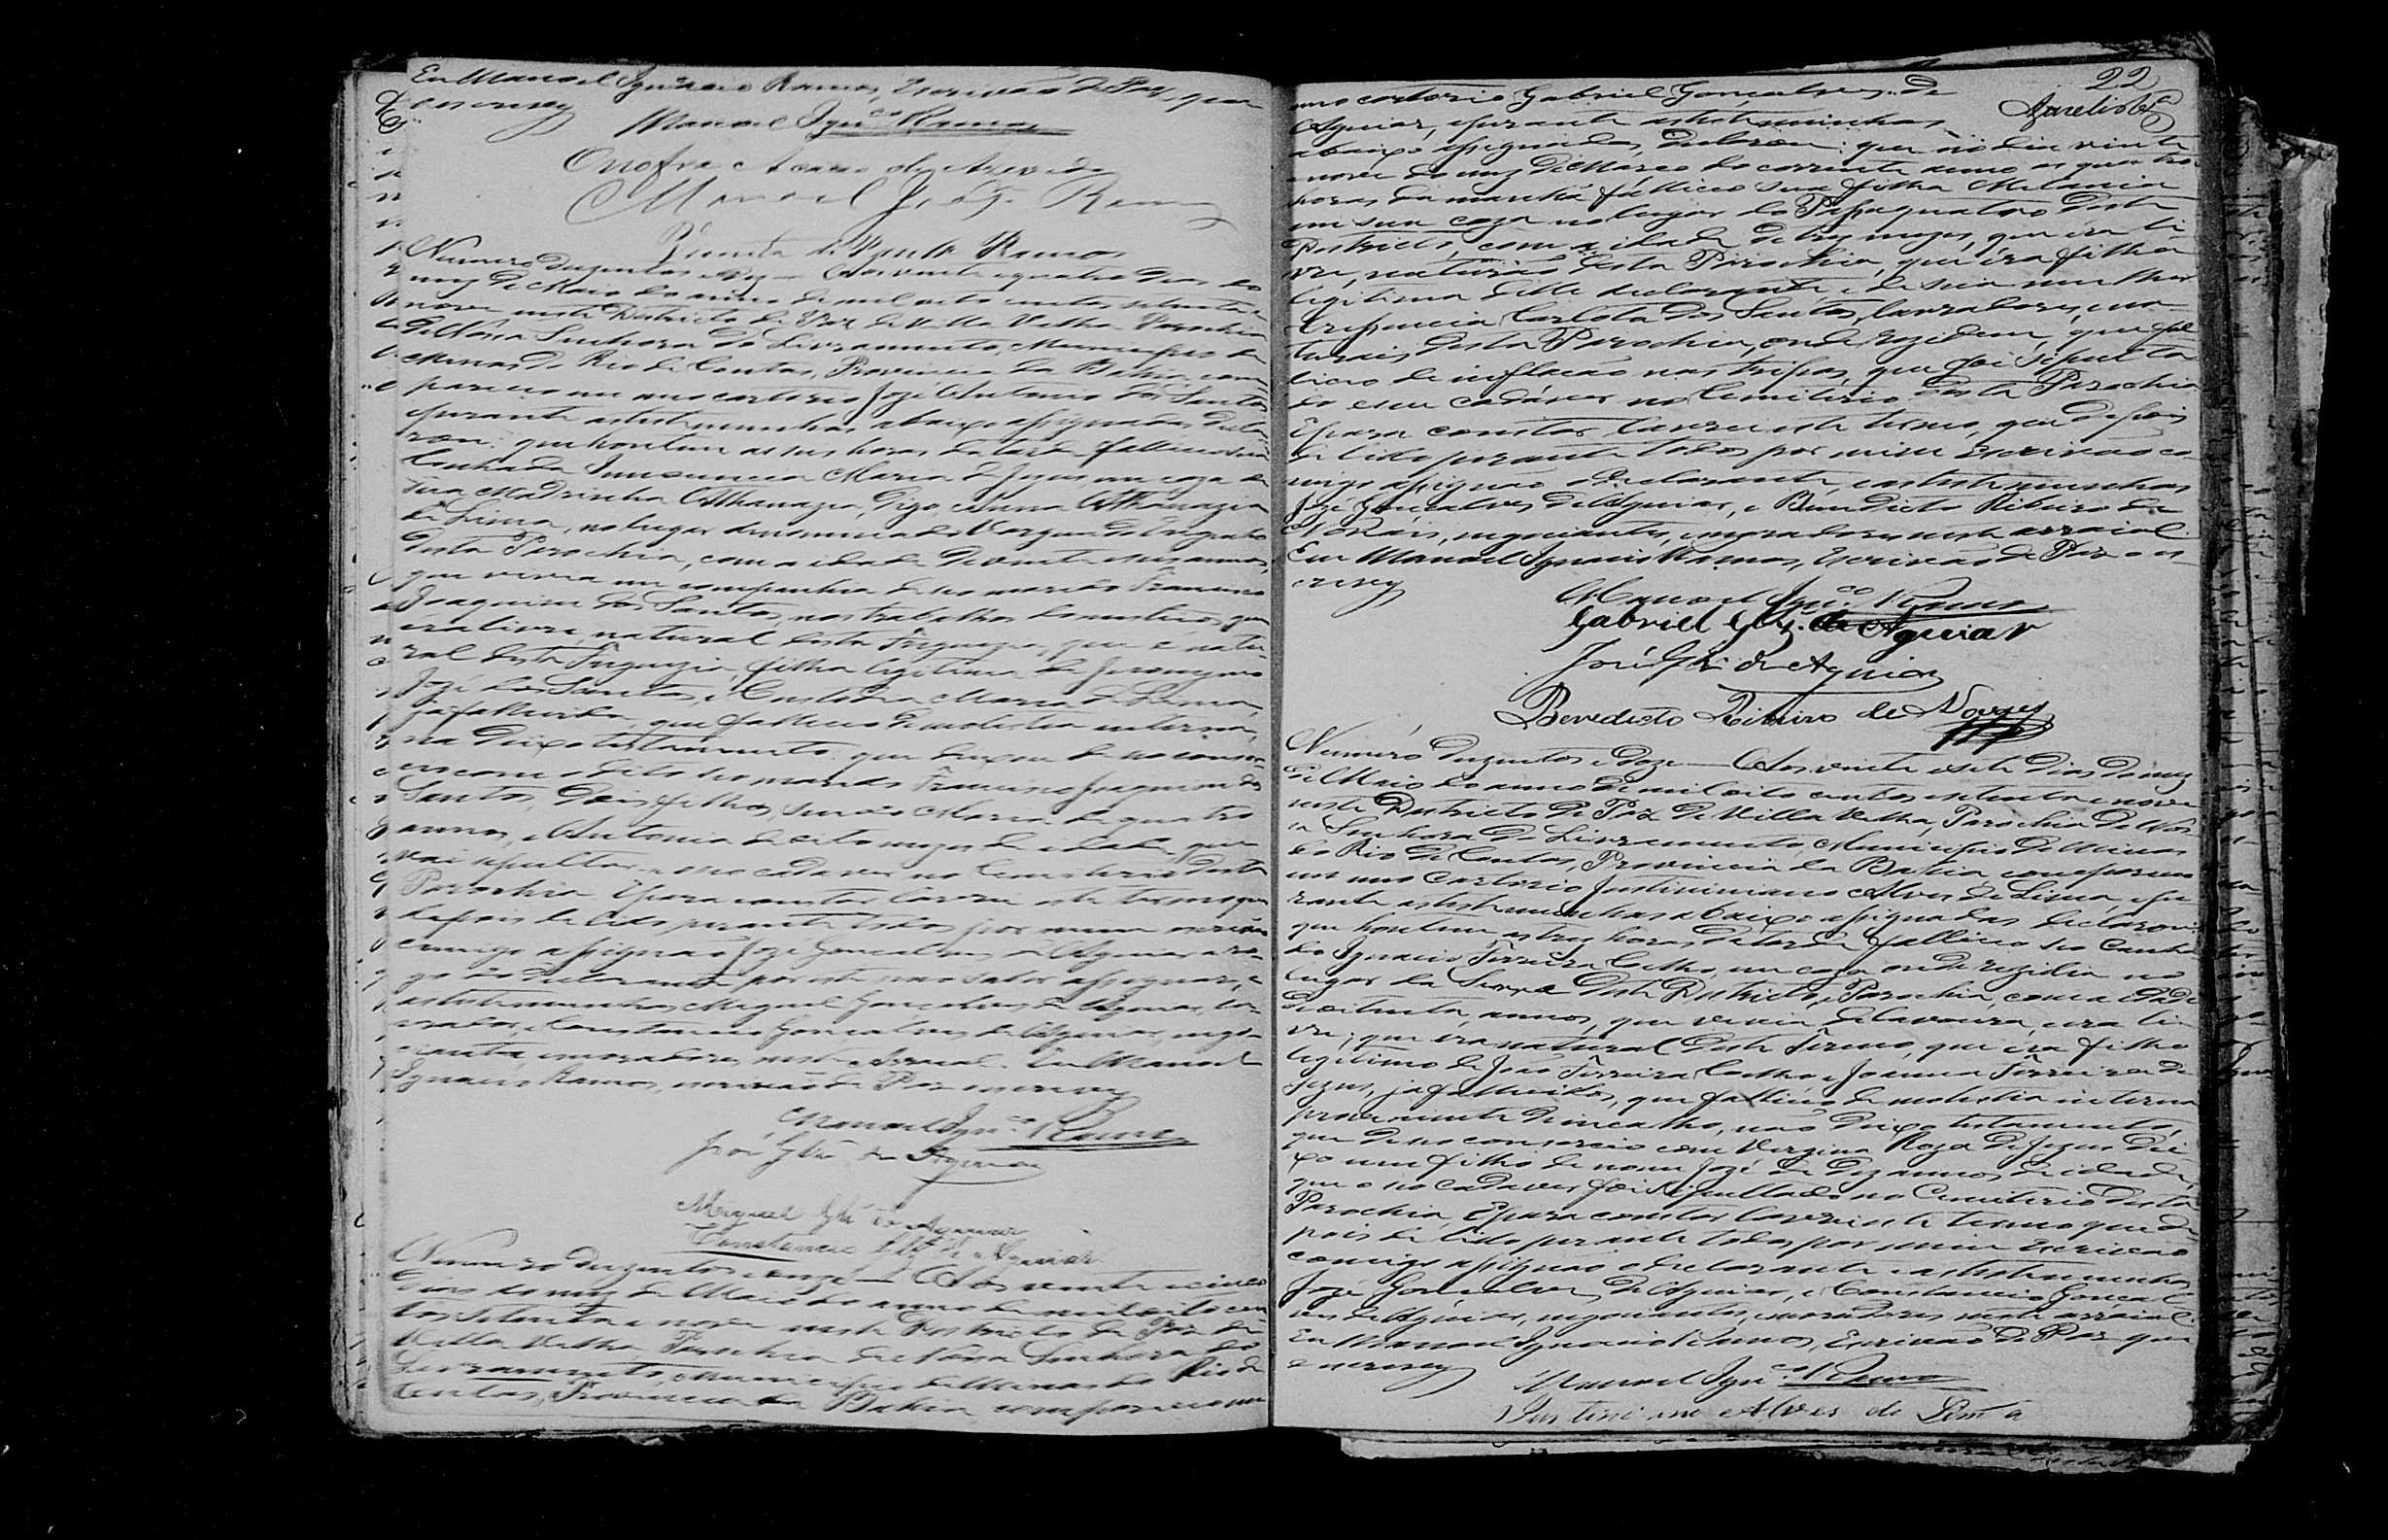 Eu Manoel Ignacio Ramos, Escrivaõ de Paz, que
escrevy
Manoel Ignco Ramos
Onofre Acacio de Azevedo
Manoel José Ramos
de Paula Ramos
Numero duzentos e dez — Aos vinte e quatro dias do
mez de Maio do anno de mil oito centos setenta e
nove neste Districto de Paz de Villa Velha Parochia
de Nossa Senhora do Livramento, Municipio de
Minas do Rio de Contas, Provincia da Bahia, com-
pareceu em meo cartorio José Antonio dos Santos
e perante as testemunhas abaixo assignadas decla-
rou: que hontem as seis horas da tarde falleceu sua
Cunhada Innocencia Maria de Jezus em caza de
sua Madrinha Athanazia, digo Anna Athanazia
de Lima, no lugar denominado Vargem
desta Parochia, com a idade de vinte e seis annos,
que vivia em companhia de seo marido Francisco
Joaquim dos Santos, nos trabalhos domesticos, que
era livre, natural desta Freguezia, que é natu-
ral desta Freguezia, filha legitima de Jeronymo
José dos Santos, e Custodia Maria de Lima,
ja fallecida, que falleceo de molestia interna,
naõ deixo testamento: que deixou de seo consor-
cio com o dito seo marido Francisco Joaquim dos
Santos, dois filhos, sendo Maria de quatro
annos, e Antonia de oito mezes de idade, que
vai sepultar-se seo cadaver no Cemiterio desta
Parochia. E para constar lavrei este termo que
depois de lido perante todos por mim escrivaõ
comigo assignaõ José Gonçalves de Aguiar a ro-
go do declarante por este naõ saber assignar, e
as testemunhas Miguel Gonçalves de Aguiar, la-
vrador, e Constancio Gonçalves de Aguiar, nego-
ciante, moradores neste Arraial. Eu Manoel
Ignacio Ramos, escrivaõ de Paz escrevy
Manoel Ignco Ramos
José Glz de Aguiar
Miguel Glz de Aguiar
Constancio Glz de Aguiar
Numero duzentos e onze — Aos vinte e cinco
dias do mez de Maio do anno de mil oito cen-
tos setenta e nove neste Districto de Paz de
Villa Velha Parochia de Nossa Senhora do
Livramento, Municipio de Minas do Rio de
Contas, Provincia da Bahia compareceo em
22
meo cartorio Gabriel Gonçalves de
Aguiar, e perante as testemunhas
abaixo assignadas, declarou: que no dia vinte
e nove do mez de Março do corrente anno as quatro
horas da manhã falleceo sua filha Melania
em sua caza no lugar do Passaquatro deste
Districto, com a idade de tres mezes, que era li-
vre, natural desta Parochia, que era filha
legitima delle declarante e de sua mulher
Carlota dos Santos, lavradores, na-
turais desta Parochia, onde rezidem, que fal
leceo de inflacaõ nas tripas, que foi sepulta
do o seu cadaver no Cemiterio desta Parochia
E para constar lavrei este termo, que depois
de lido perante todos por mim Escrivaõ co
migo assignaõ o declarante, e as testemunhas
José Gonçalves de Aguiar, e Benedicto Ribeiro de
Novais, negociantes, moradores neste arraial
Eu Manoel Ignacio Ramos, Escrivaõ de Paz o es-
crevy
Manoel Ignco Ramos
Gabriel Glz. de Aguiar
José Glz de Aguiar
Benedicto Ribeiro de Novaes
Numero duzentos e doze — Aos vinte e sete dias do mez
de Maio do anno de mil oito centos e setenta e nove
neste Districto de Paz de Villa Velha, Parochia de Nos
sa Senhora do Livramento, Municipio de Minas
do Rio de Contas, Provincia da Bahia compareceo
em meo Cartorio Justiniano Alves de Lima, e pe
rante as testemunhas abaixo assignadas declarou:
que hontem as tres horas da tarde falleceo seo Cunha
do Ignacio Ferreira Coelho, em caza onde rezidia no
lugar da Serra deste Districto, e Parochia, com a idade
de oitenta annos, que vivia de lavoura, era li
vre, que era natural deste Termo, que era filho
legitimo de João Ferreira Coelho e Joanna Ferreira de
Jezus, ja fallecidos, que falleceo de molestia interna
proveniente de, naõ deixo testamento,
que de seo consorcio com Vergina Roza de Jezus dei
xo um filho de nome José de dez annos de idade,
que o seo cadaver foi sepultado no Cemiterio desta
Parochia. E para constar lavrei este termo que de
pois de lido perante todos por mim Escrivaõ
comigo assignaõ o declarante e as testemunhas
José Gonçalves de Aguiar, e Constancio Gonçal
ves de Aguiar, negociantes, moradores neste arraial
Eu Manoel Ignacio Ramos, Escrivaõ de Paz que
escrevy
Manoel Ignco Ramos
Justiniano Alves de Lima